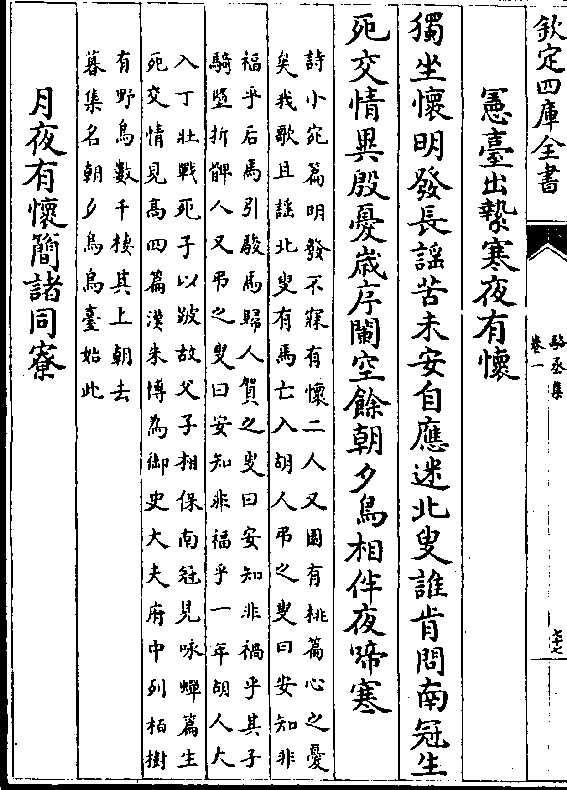 欽定四庫全書
駱丞集
卷一
七十七
憲臺出縶寒夜有懷
獨坐懷明發長謡苦未安自應迷北叟誰肯問南冠生
死交情異殷憂歲序闌空餘朝夕鳥相伴夜啼寒
詩小宛篇明發不寐有懷二人又園有桃篇心之憂
矣我歌且謡北叟有馬亡入胡人弔之叟曰安知非
福乎后馬引駿馬歸人賀之叟曰安知非禍乎其子
騎墮折髀人又弔之叟曰安知非福乎一年胡人大
入丁壯戰死子以跛故父子相保南冠見咏蟬篇生
死交情見髙四篇漢朱博為御史大夫府中列栢樹
有野鳥數千棲其上朝去
暮集名朝夕鳥烏臺始此
月夜有懷簡諸同寮